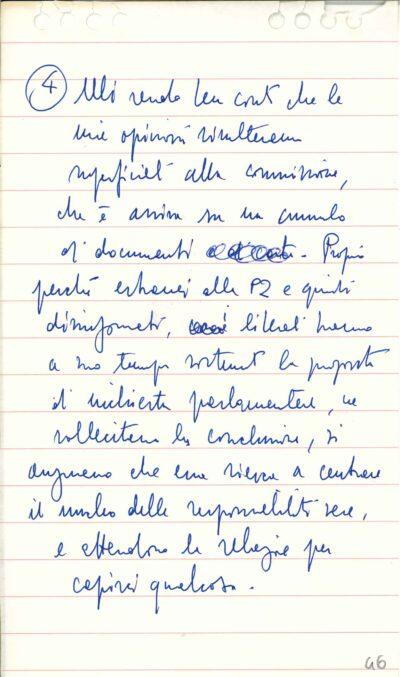 ④ Mi rendo ben conto che le
mie opinioni risulteranno
superficiali alla commissione,
che è assisa su un cumulo
di documenti. Proprio
perché estranei alla P2 e quindi
disinformati, i liberali hanno
a suo tempo sostenuto la proposta
d'inchiesta parlamentare, ne
sollecitano la conclusione, si
augurano che essa riesca a centrare
il nucleo delle responsabilità vere,
e attendono la relazione per
capirci qualcosa.
46